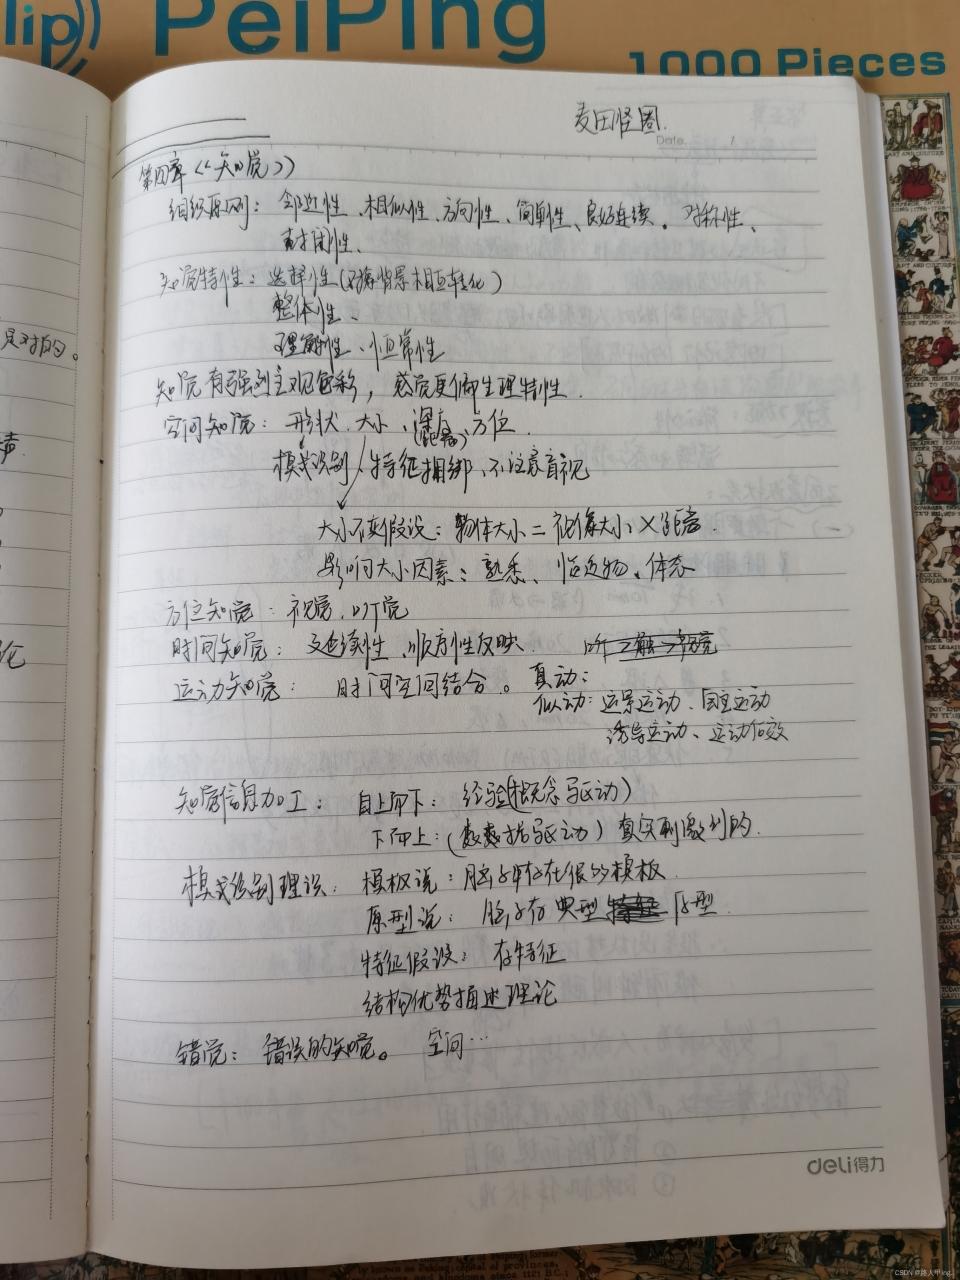 lip
PeiPing
1000 Pieces
麦田怪圈.
Date. /
第四章《知觉》
组织原则：邻近性、相似性、方向性、简单性、良好连续。对称性、
封闭性、
知觉特性：选择性(对象背景相互转化)
整体性、
理解性、恒常性
知觉有强烈主观色彩，感觉更偏生理特性.
空间知觉：形状、大小、深度(距离)、方位.
模式识别 特征捆绑、不注意盲视
大小不变假设：物体大小=视像大小×距离.
影响大小因素：熟悉、临近物、体态
方位知觉：视觉、听觉
时间知觉：延续性、顺序性反映. 听>触>视觉
运动知觉：时间空间结合。真动：
似动：运景运动、自主运动
诱导运动、运动后效
知觉信息加工：自上而下：经验(概念驱动)
下而上：(数据驱动)真实刺激到的.
模式识别理论：模板说：脑子中存在很多模板.
原型说：脑子存典型 原型.
特征假设：存特征
结构优势描述理论
错觉：错误的知觉。 空间…
是对的。
声
论
deli得力
CSDN @路人甲ing..